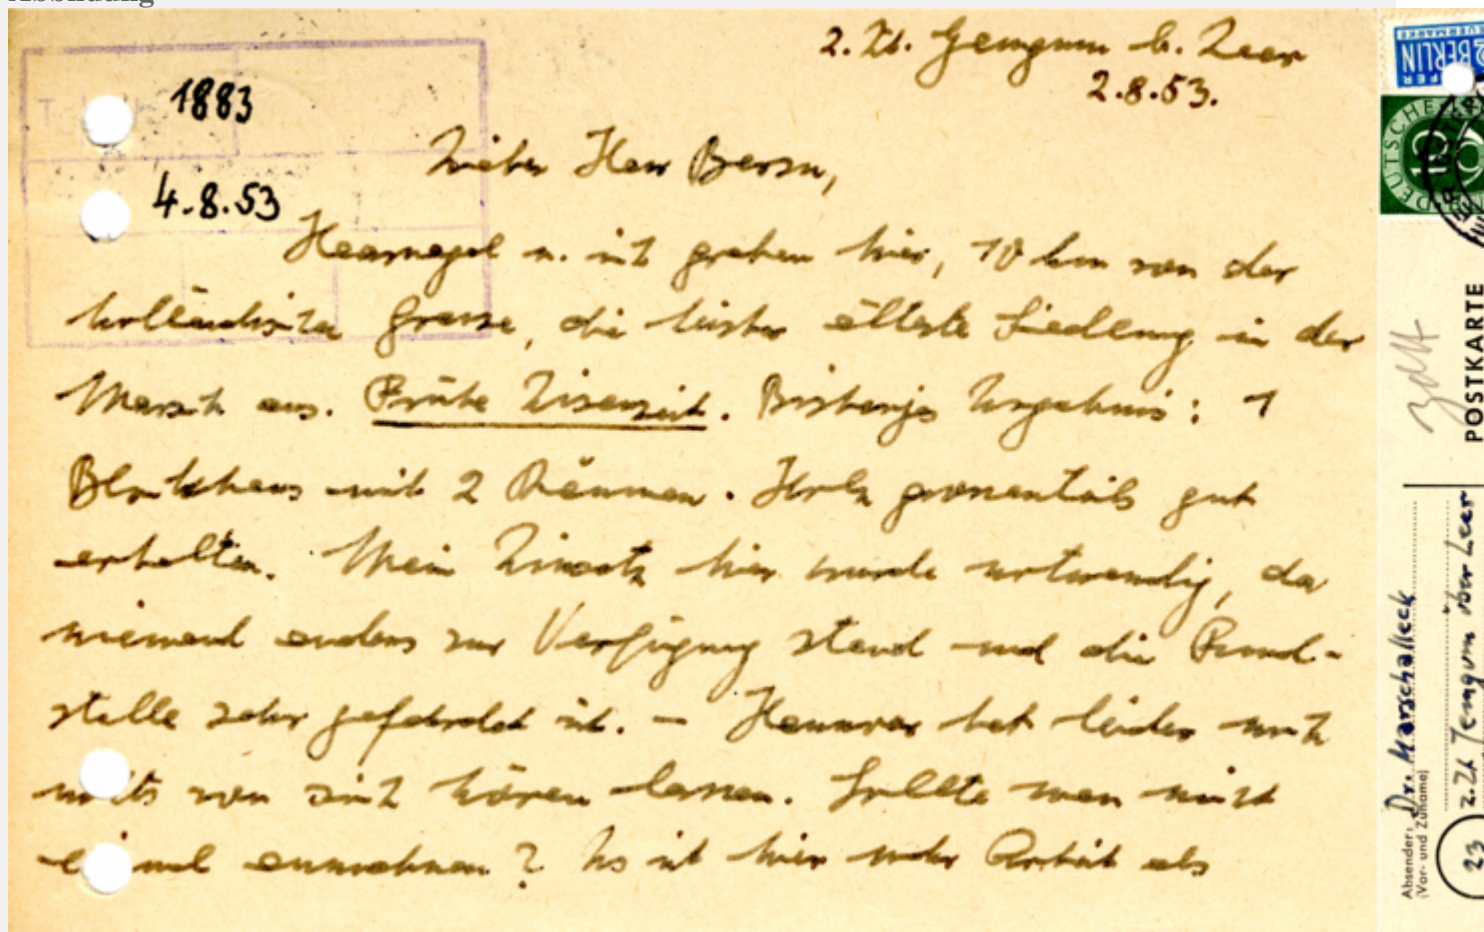 z. Zt. Jemgum b. Leer
2.8.53.
1883
4.8.53
Lieber Herr Bersu,
Haarnagel u. ich graben hier, 10 km von der
holländischen Grenze, die bisher älteste Siedlung in der
Marsch aus. Frühe Eisenzeit. Bisheriges Ergebnis: 1
Blockhaus mit 2 Räumen. Holz grossenteils gut
erhalten. Mein Einsatz hier wurde notwendig, da
niemand anders zur Verfügung stand und die Fund-
stelle sehr gefährdet ist. – Hannover hat leider noch
nichts von sich hören lassen. Sollte man nicht
einmal anmahnen? Es ist hier mehr Arbeit als
BERLIN
STEUERMARKE
DEUTSCHE
POSTKARTE
zdA
Absender: Dr. Marschalleck
(Vor- und Zuname)
z. Zt Jemgum über Leer
23